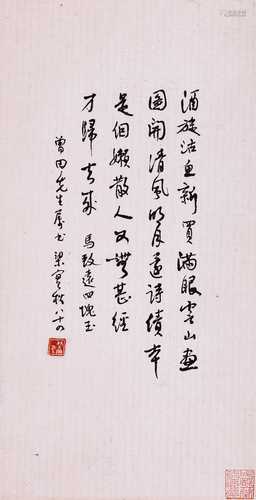 酒旋沽魚新買滿眼雲山畫
圖開清風明月還詩債本
是個懶散人又無甚經
才歸去來 馬致遠四塊玉
曾田先生屬書 梁實秋